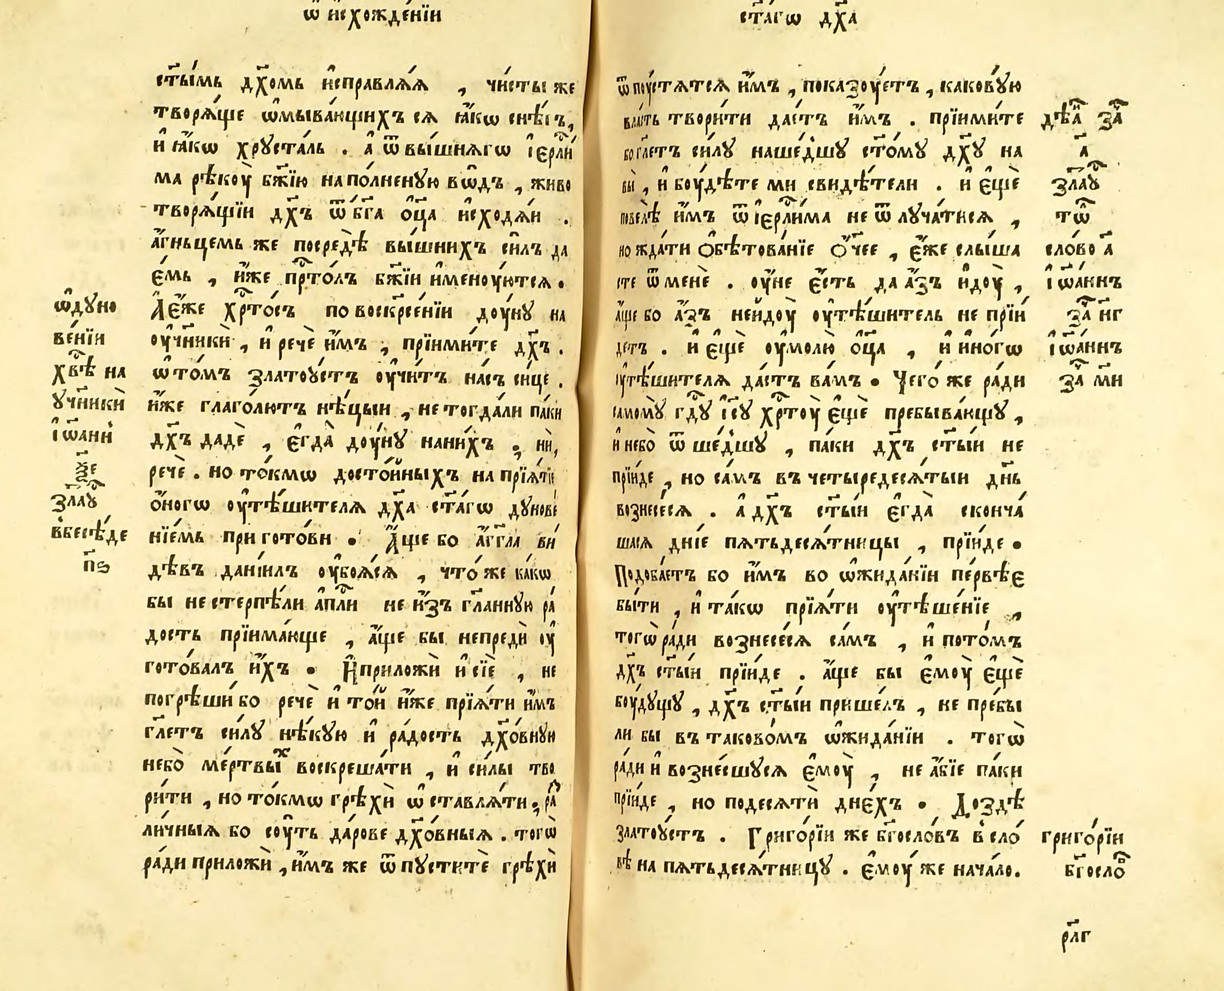 ѿ исхожде́нїи
ст҃ы́мь дх҃омь исправлѧ́ѧ , чи́сты же
творѧ́ще ѡ҆мыва́ющихъ сѧ ꙗ҆́кѡ снѣ́гъ,
и҆ ꙗ҆́кѡ хруста́ль . а҆ ѿ вы́шнѧгѡ і҆ерⷭ҇ли́
ма рѣкоу̀ бж҃їю напо́лненую во́дъ , живо
творѧ́щїи дх҃ъ ѿ бг҃а ѻ҆ц҃а и҆сходѧ́и .
а҆́гньцемь же посредѣ̀ вы́шнихъ си́лъ да
е҆́мь , и҆́же прⷭ҇то́лъ бж҃їи и҆меноу́ютсѧ .
А҆е҆́же хрⷭ҇то́съ по воскрⷭ҇е́нїи доу́ну на
оу҆чн҃икѝ , и҆ речѐ и҆̀мъ , прїими́те дх҃ъ .
ѡ҆ то́мъ златоу́стъ оу҆чи́тъ на́съ си́це .
и҆̀же глаго́лютъ нѣ́цыи , не тогда́ ли па́ки
дх҃ъ дадѐ , е҆гда̀ доу́ну на ни́хъ . нѝ,
речѐ . но то́кмѡ досто́йныхъ на прїѧ́тїе
ѻ҆́ногѡ оу҆тѣ́шителѧ дх҃а ст҃а́гѡ дунове́
нїемь приготови . А҆́ще бо а҆́гг҃ла ви́
дѣвъ данїи́лъ оу҆боѧ́сѧ , что́ же ка́кѡ
бы не стерпѣ́ли а҆пⷭ҇ли не и҆зъ гл҃анную ра́
дость прїима́юще , а҆́ще бы не предѝ оу҆
гото́валъ и҆̀хъ . И҆ приложѝ и҆ сїѐ , не
погрѣши́ бо речѐ и҆ то́й и҆́же прїѧ́ти и҆̀мъ
гл҃етъ си́лу нѣ́кую и҆ ра́дость дх҃о́вную
небо̀ ме́ртвыⷯ воскреша́ти , и҆ си́лы тво
ри́ти , но то́кмѡ грѣхѝ ѡ҆ставлѧ́ти, раⷥ
ли́чныѧ бо соу́ть да́рове дх҃о́вныѧ . того̀
ра́ди приложѝ , и҆̀мъ же ѿпуститѐ грѣхѝ
ѡ҆ дуно
ве́нїи
хв҃ѣ на
у҆чн҃икѝ
і҆ѡа́нн
ѯ҃е
злаⷮу
в бесѣ́де
п҃ѕ
ст҃а́гѡ дх҃а
ѿпоу́стѧтсѧ и҆̀мъ , показоу́етъ , какову́ю
вла́сть твори́ти да́стъ и҆̀мъ . прїими́те
бо гл҃етъ си́лу наше́дшу ст҃о́му дх҃у на
вы̀ , и҆ боу́дѣте ми свидѣ́тели . и҆ е҆щѐ
повелѣ̀ и҆̀мъ ѿ і҆ерⷭ҇ли́ма не ѿлуча́тисѧ ,
но жда́ти ѻ҆бѣтова́нїе ѻ҆́ч҃ее , е҆́же слы́ша
сте ѿ менѐ . оу҆́не е҆́сть да а҆́зъ и҆доу̀ ,
а҆́ще бо а҆́зъ не и҆доу̀ оу҆тѣ́шитель не прїи́
детъ . и҆ е҆щѐ оу҆молю̀ ѻ҆ц҃а , и҆ и҆но́гѡ
оу҆тѣ́шителѧ да́стъ ва́мъ . Чего́ же ра́ди
самому̀ гдⷭ҇у і҆с҃у хрⷭ҇тоу̀ е҆щѐ пребыва́ющу ,
и҆ небо̀ ѿше́дшу , па́ки дх҃ъ ст҃ы́и не
прїи́де , но са́мъ въ четыредесѧ́тыи дн҃ь
вознесе́сѧ . а҆ дх҃ъ ст҃ы́и е҆гда̀ сконча́
шасѧ дні́е пѧтьдесѧ́тницы , прїи́де .
Подоба́етъ бо и҆̀мъ во ѡ҆жида́нїи пе́рвѣе
бы́ти , и҆ та́кѡ прїѧ́ти оу҆тѣше́нїе ,
того̀ ра́ди вознесе́сѧ са́мъ , и҆ пото́мъ
дх҃ъ ст҃ы́и прїи́де . а҆́ще бы е҆моу̀ е҆щѐ
боу́дущу , дх҃ъ ст҃ы́и прише́лъ , не пребы
ли бы въ таково́мъ ѡ҆жида́нїи . того̀
ра́ди и҆ возне́сшусѧ е҆моу̀ , не а҆́бїе па́ки
прїи́де , но по десѧтѝ дне́хъ . До здѣ̀
златоу́стъ . Григо́рїи же бг҃осло́въ в сло́
вѣ на пѧтьдесѧ́тницу . е҆моу́ же нача́ло.
дѣѧⷩ҇ заⷱ
а҃
злаⷮу
тоⷧ
сло́во а҃
і҆ѡа́ннъ
заⷱ нг
і҆ѡа́ннъ
заⷱ мн
григо́рїи
бг҃осло́ⷡ
рл҃г